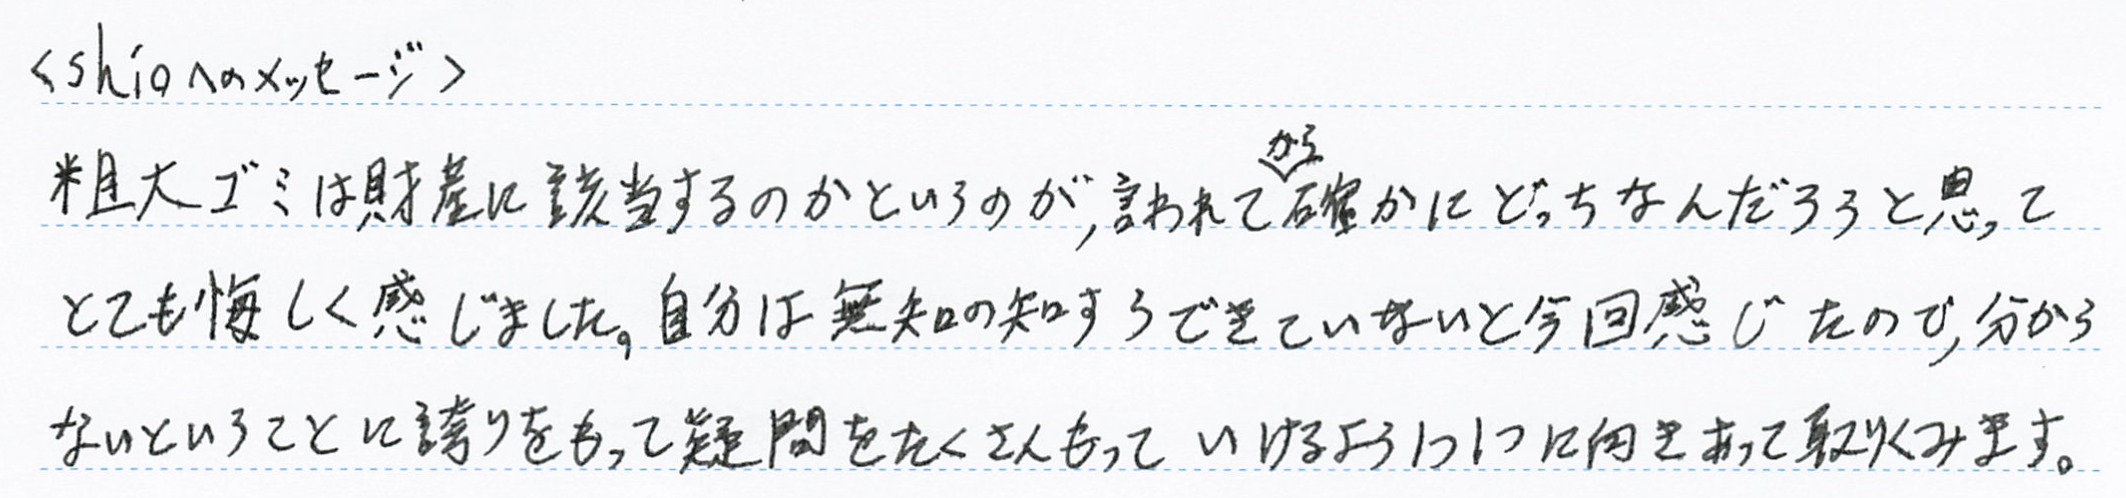 <shioへのメッセージ>
粗大ゴミは財産に該当するのかというのが,言われてから確かにどっちなんだろうと思って
とても悔しく感じました。自分は無知の知すらできていないと今回感じたので,分から
ないということに誇りをもって疑問をたくさんもっていけるよう1つ1つに向きあって取りくみます。